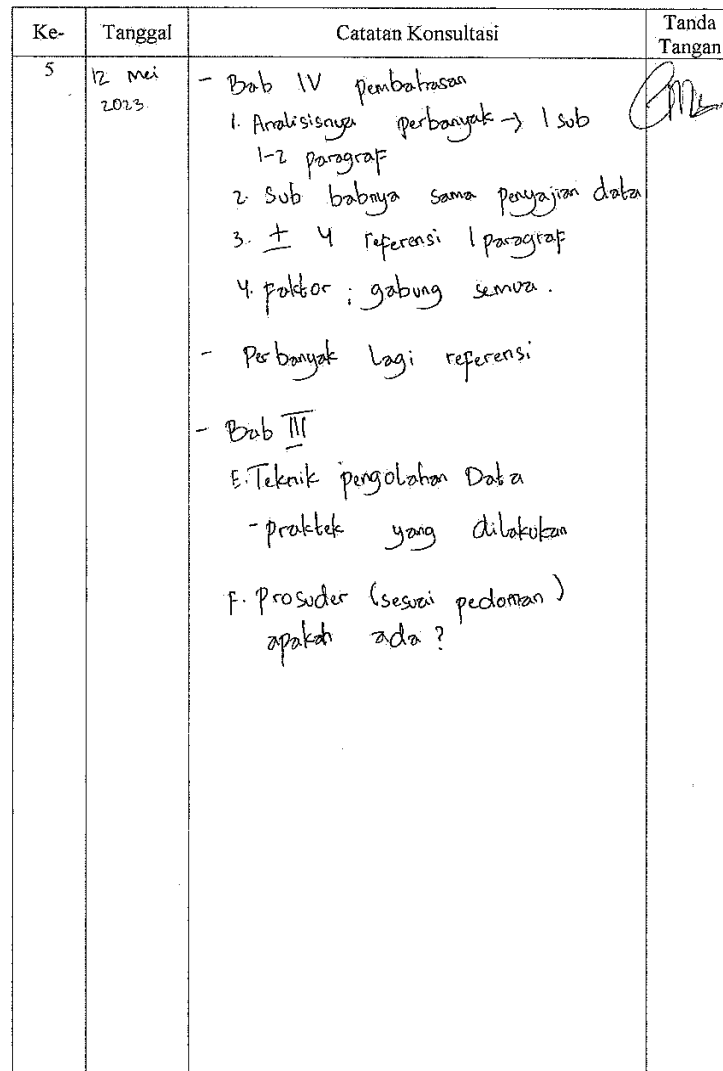 Ke- Tanggal Catatan Konsultasi Tanda Tangan
5 12 Mei 2023.
- Bab IV pembahasan
1. Analisisnya perbanyak → 1 sub
1-2 paragraf
2. Sub babnya sama penyajian data
3. ± 4 referensi 1 paragraf
4. Faktor ; gabung semua.
- Perbanyak lagi referensi
- Bab III
E. Teknik pengolahan Data
- praktek yang dilakukan
F. Prosuder (sesuai pedoman)
apakah ada ?